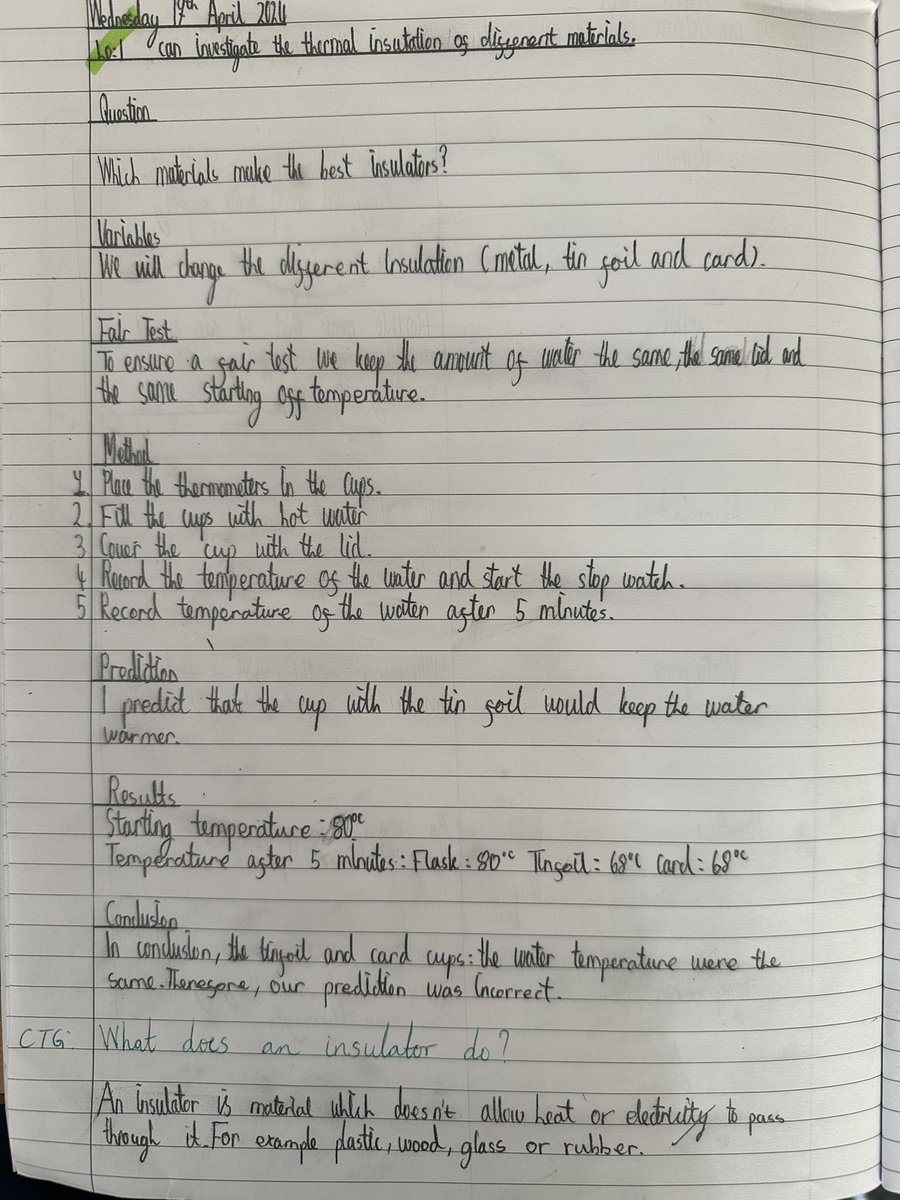 Wednesday 17th April 2024
Lo: I can investigate the thermal insulation of different materials.
Question
Which materials make the best insulators?
Variables
We will change the different insulation (metal, tin foil and card).
Fair Test
To ensure a fair test we keep the amount of water the same, the same lid and
the same starting off temperature.
Method
1. Place the thermometers in the cups.
2. Fill the cups with hot water
3 Cover the cup with the lid.
4 Record the temperature of the water and start the stop watch.
5 Record temperature of the water after 5 minutes.
Prediction
I predict that the cup with the tin foil would keep the water
warmer.
Results
Starting temperature: 80°C
Temperature after 5 minutes: Flask: 80°C Tinfoil: 68°C Card: 68°C
Conclusion
In conclusion, the tinfoil and card cups: the water temperature were the
same. Therefore, our prediction was incorrect.
CTG: What does an insulator do?
An insulator is material which doesn't allow heat or electricity to pass
through it. For example plastic, wood, glass or rubber.